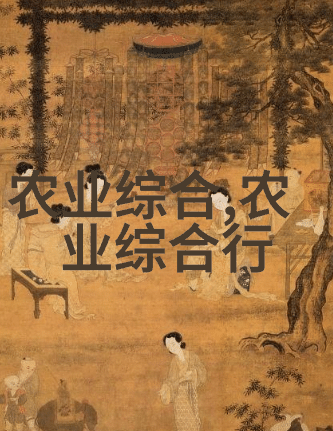 农业综合,农
业综合行